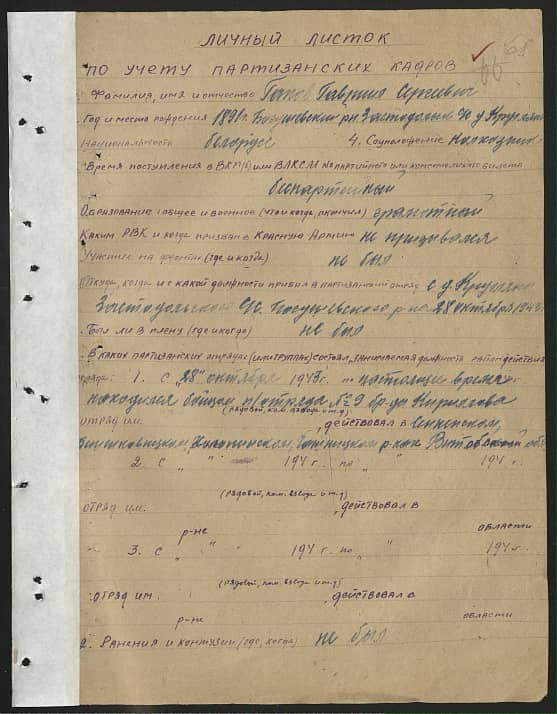 ЛИЧНЫЙ ЛИСТОК
ПО УЧЕТУ ПАРТИЗАНСКИХ КАДРОВ
Фамилия, имя и отчество Гавриил Сергеевич
Год и место рождения 1891г. Богушевский р-н Застодольск
Национальность белорус 4. Соцположение Колхозник
Время поступления в ВКП(б) или ВЛКСМ № партийного или комсомольского билета
беспартейный
Образование (общее и военное (что и когда, окончил) грамотный
Каким РВК и когда призван в Красную Армию не призывался
Участие на фронте (где и когда) не был
Откуда, когда и с какой должности прибыл в партизанский отряд с д.
Застодольского Богушевского р-на 28 октября 1943г.
Был ли в плену (где и когда) не был
В каких партизанских отрядах (или группах) состоял, занимаемая должность район действия
отряда: 1. С "28" октября 1943г. по настоящи время
находился бойцом п/отряда №9 бр. Кирилова
(рядовой, ком. взвода и т.д)
ОТРЯД ИМ. действовал в Сенненском,
Холопинском, Чашницком р-нах Витебской обл
2. С " " 194 г. по " 194 г.
(рядовой, ком. взвода и т.д)
ОТРЯД ИМ. действовал в
р-не ОБЛАСТИ
3. С " " 194 г. по " 194 г.
(рядовой, ком. взвода и т.д)
ОТРЯД ИМ. действовал в
р-не ОБЛАСТИ
2. Ранения и контузии (где, когда) не был